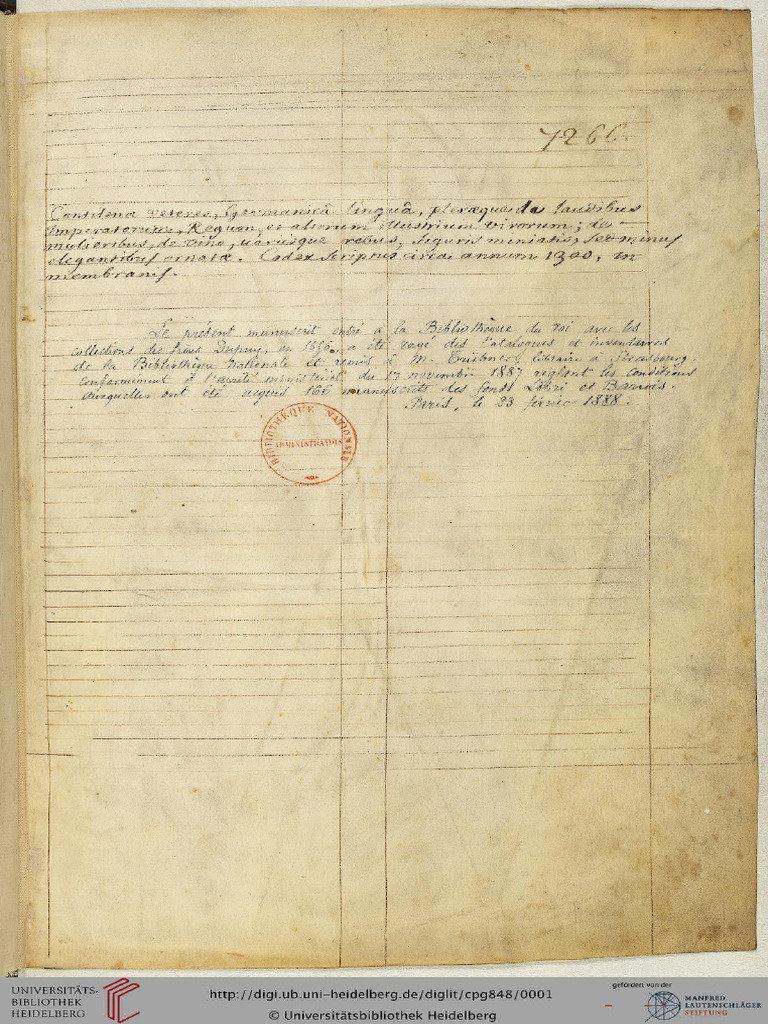 7266.
Cantilenæ veteres, Germanicâ linguâ, pleræque de laudibus
Imperatorum, Regum, et aliorum illustrium virorum; de
mulieribus, de vino, variisque rebus, figuris miniatis, sed minus
elegantibus ornatæ. Codex scriptus circa annum 1300, in
membranis.
Le présent manuscrit entré à la Bibliothèque du roi avec les
collections des frères Dupuy, en 1656, a été rayé des Catalogues et inventaires
de la Bibliothèque Nationale et remis à M. Trübner, libraire à Strasbourg,
conformément à l'arrêté ministériel du 17 novembre 1887 réglant les conditions
auxquelles ont été acquis 166 manuscrits des fonds Libri et Barrois.
Paris, le 23 février 1888.
BIBLIOTHÈQUE NATIONALE
ADMINISTRATION
UNIVERSITÄTS-
BIBLIOTHEK
HEIDELBERG
http://digi.ub.uni-heidelberg.de/diglit/cpg848/0001
© Universitätsbibliothek Heidelberg
gefördert von der
MANFRED
LAUTENSCHLÄGER
STIFTUNG